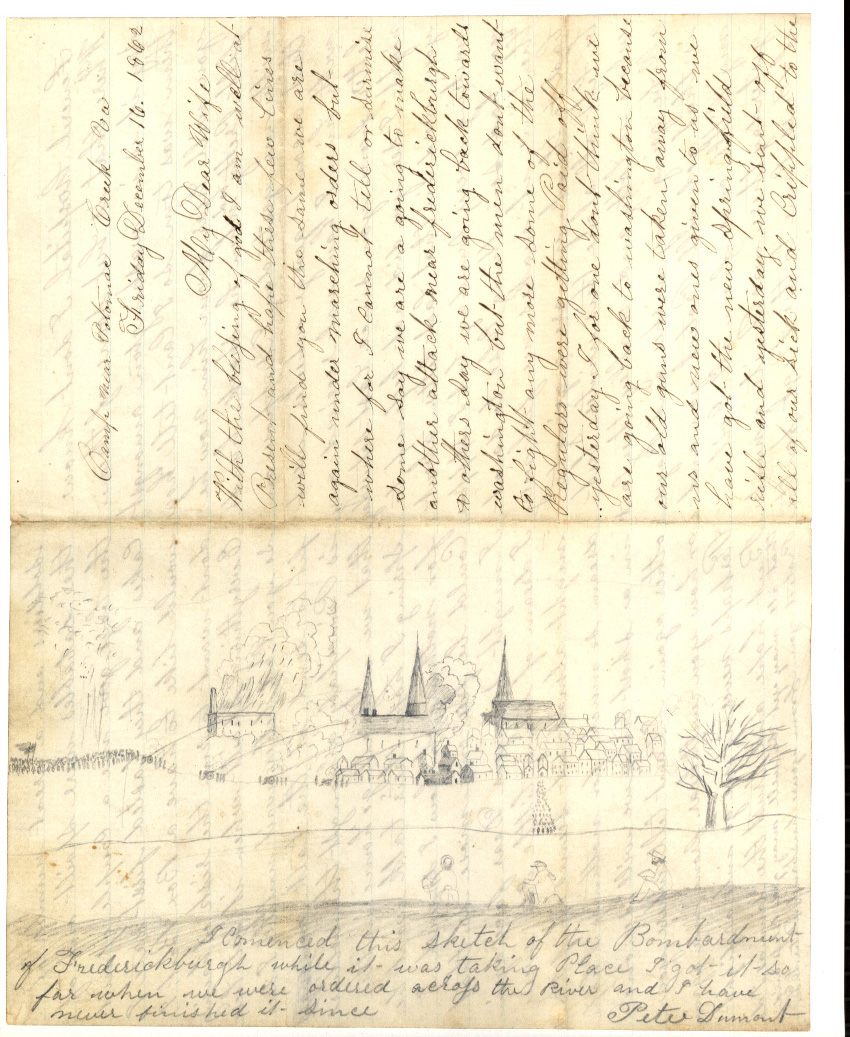 Camp near Potomac Creek Va
Friday December 16. 1862
My Dear Wife
With the blessing of god I am well at
Present and hope these few lines
will find you the same we are
again under marching orders but
where for I cannot tell or surmise
some say we are a going to make
another attack near frederickburgh
& others say we are going back towards
washington but the men dont want
to fight any more some of the
Regulars were getting Paid off
yesterday I for one dont think we
are going back to washington because
our old guns were taken away from
us and new ones given to us we
have got the new springfield
rifle and yesterday we sent off
all of our sick and crippled to the
I Comenced this sketch of the Bombardment
of Frederickburgh while it was taking Place I got it so
far when we were ordered across the River and I have
never finished it since
Peter Dumont